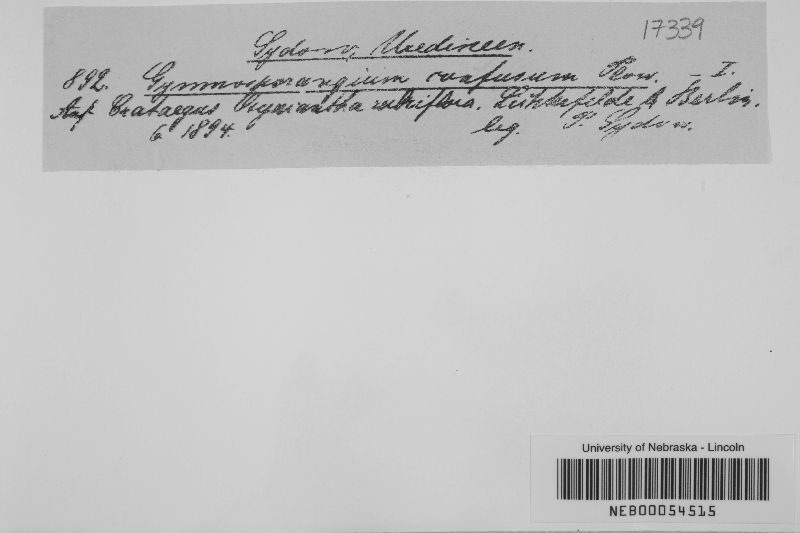 17339
Sydow, Uredineen.
892. Gymnosporangium confusum Plow. – I.
Auf Crataegus Oxyacantha rubriflora. Lichterfelde b. Berlin.
6 1894. leg. P. Sydow.
University of Nebraska - Lincoln
NEB00054515